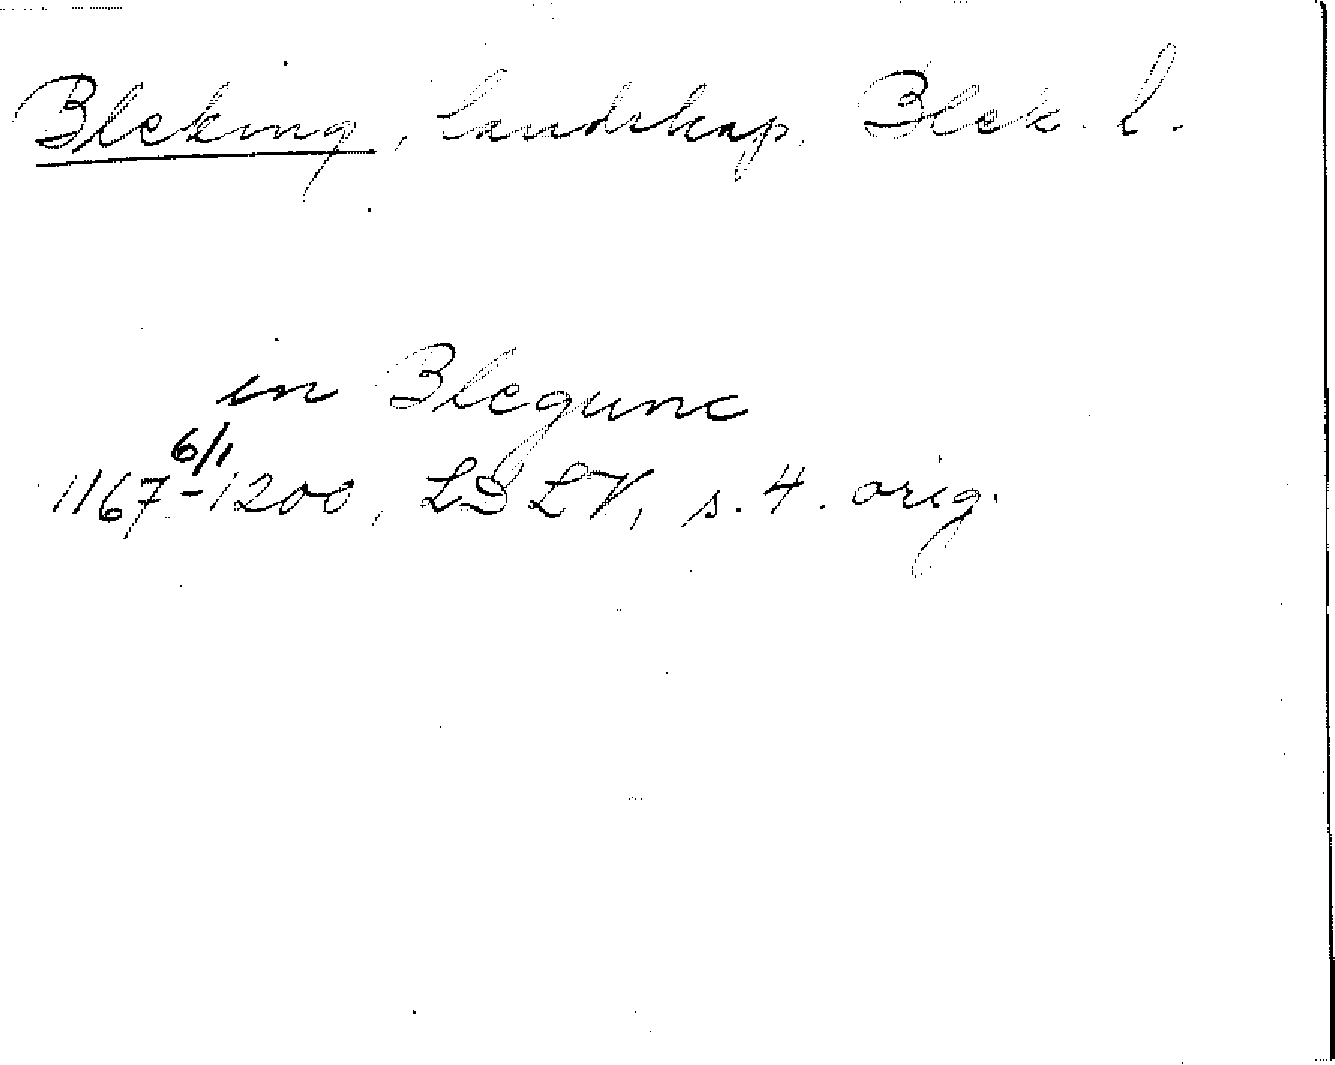 Bleking, landskap. Blek. l.
in Blegunc
6/1
1167-1200, LD LV, s. 4. orig.